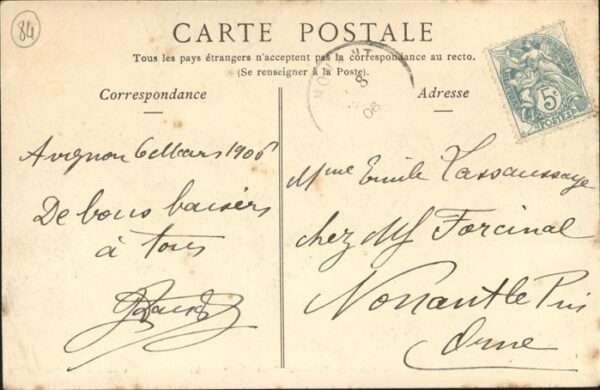 84
CARTE POSTALE
Tous les pays étrangers n'acceptent pas la correspondance au recto.
(Se renseigner à la Poste).
Correspondance
Adresse
8
06
5c
POSTES
Avignon 6 Mars 1906
De bons baisers
à tous
Mme Emile
chez Mr Forcinal
Nonant le Pin
Orne